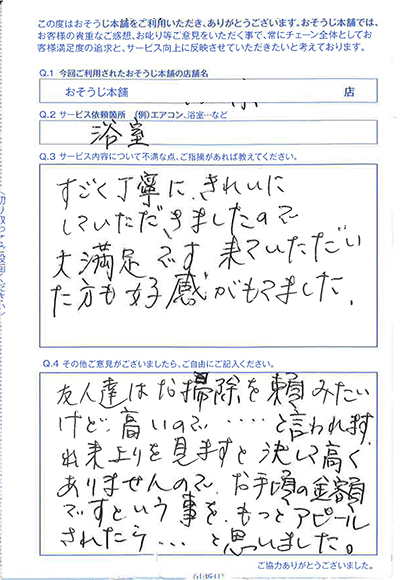 この度はおそうじ本舗をご利用いただき、ありがとうございます。おそうじ本舗では、
お客様の貴重なご感想、お叱り等ご意見をいただく事で、常にチェーン全体としてお
客様満足度の追求と、サービス向上に反映させていただきたいと考えております。
Q.1 今回ご利用されたおそうじ本舗の店舗名
おそうじ本舗 店
Q.2 サービス依頼箇所 (例)エアコン、浴室…など
浴室
Q.3 サービス内容について不満な点、ご指摘があれば教えてください。
すごく丁寧に、きれいに
していただきましたので
大満足です 来ていただい
た方も好感がもてました。
Q.4 その他ご意見がございましたら、ご自由にご記入ください。
友人達はお掃除を頼みたい
けど、高いので、・・・・と言われます。
出来上りを見ますと 決して高く
ありませんので、お手頃の金額
ですという事を、もっとアピール
されたら・・・と思いました。
ご協力ありがとうございました。